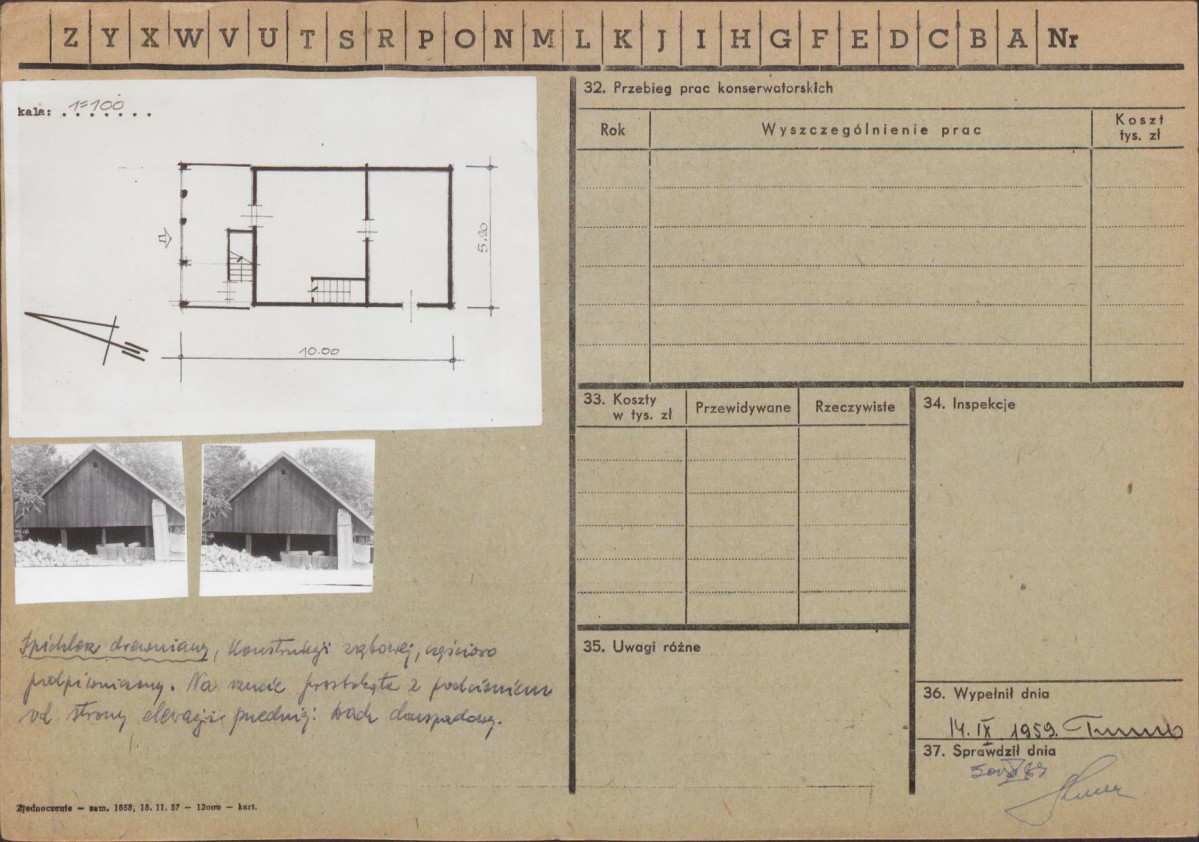 Z Y X W V U T S R P O N M L K J I H G F E D C B A Nr
kala: 1=100
5.20
10.00
Spichlerz drewniany, konstrukcji zrębowej, częściowo
podpiwniczony. Na rzucie prostokąta z podcieniem
od strony elewacji przedniej. Dach dwuspadowy.
Zjednoczenie — zam. 1858, 18. 11. 57 — 12000 — kart.
32. Przebieg prac konserwatorskich
Rok
Wyszczególnienie prac
Koszt
tys. zł
33. Koszty
w tys. zł
Przewidywane
Rzeczywiste
34. Inspekcje
35. Uwagi różne
36. Wypełnił dnia
14. IX 1959.
37. Sprawdził dnia